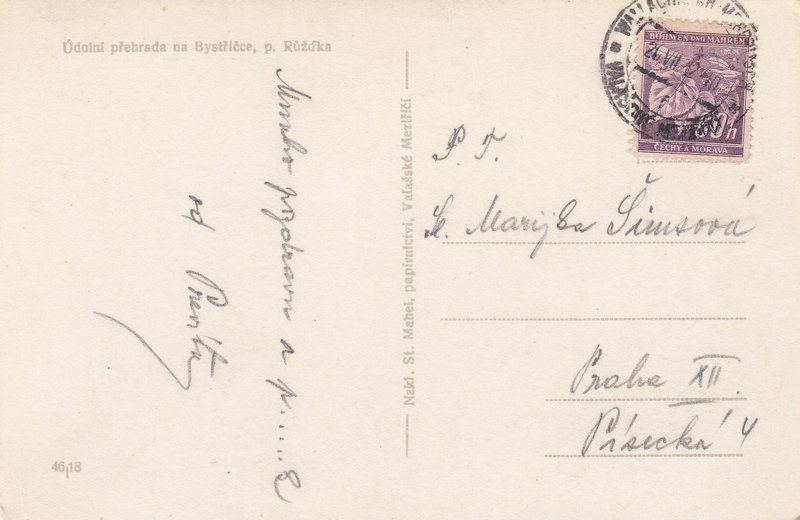 Údolní přehrada na Bystřičce, p. Růžďka
Mnoho pozdravů a p.....
od
46/18
Nakl. St. Mahel, papírnictví, Valašské Meziříčí
BÖHMEN UND MÄHREN
ČECHY A MORAVA
P. T.
Sl. Marijka Šimsová
Praha XII.
Písecká 4